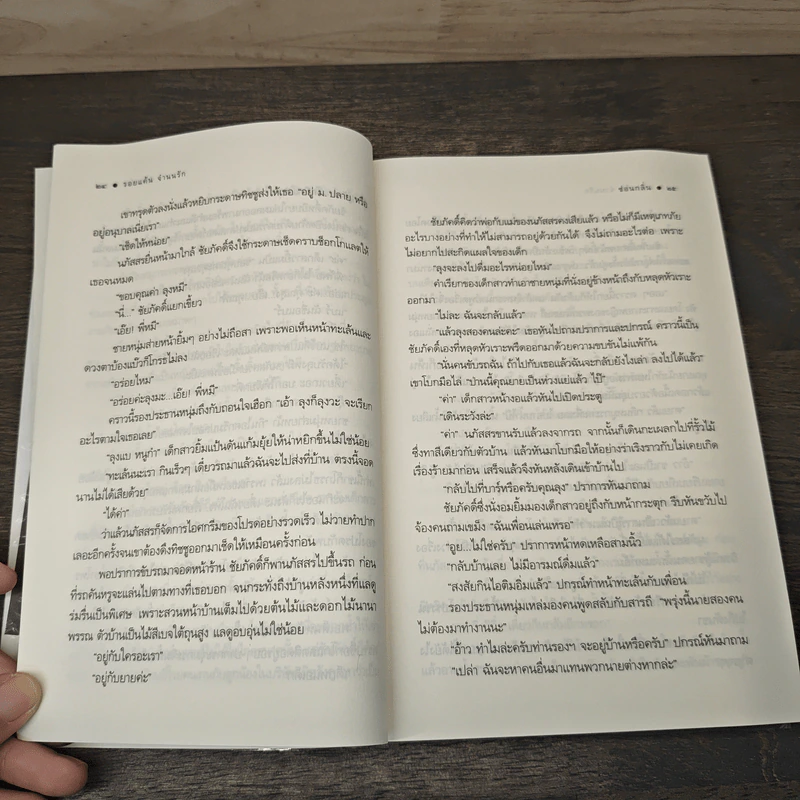 ๒๔ ● รอยแค้น จำนนรัก
เขาทรุดตัวลงนั่งแล้วหยิบกระดาษทิชชูส่งให้เธอ “อยู่ ม. ปลาย หรือ
อยู่อนุบาลเนี่ยเรา”
“เช็ดให้หน่อย”
นภัสสรยื่นหน้ามาใกล้ ชัยภักดิ์จึงใช้กระดาษเช็ดคราบช็อกโกแลตให้
เธอจนหมด
“ขอบคุณค่า ลุงหมี”
“นี่...” ชัยภักดิ์แยกเขี้ยว
“เอ๊ย! พี่หมี”
ชายหนุ่มส่ายหน้ายิ้มๆ อย่างไม่ถือสา เพราะพอเห็นหน้าทะเล้นและ
ดวงตาบ้องแบ๊วก็โกรธไม่ลง
“อร่อยไหม”
“อร่อยค่ะลุงมะ...เอ๊ย! พี่หมี”
คราวนี้รองประธานหนุ่มถึงกับถอนใจเฮือก “เอ้า ลุงก็ลุงวะ จะเรียก
อะไรตามใจเธอเลย”
“ลุงแบ หนูก๋า” เด็กสาวยิ้มแป้นดันแก้มยุ้ยให้น่าหยิกขึ้นไม่ใช่น้อย
“ทะเล้นนะเรา กินเร็วๆ เดี๋ยวรถมาแล้วฉันจะไปส่งที่บ้าน ตรงนี้จอด
นานไม่ได้เสียด้วย”
“ได้ค่า”
ว่าแล้วนภัสสรก็จัดการไอศกรีมของโปรดอย่างรวดเร็ว ไม่วายทำปาก
เลอะอีกครั้งจนเขาต้องดึงทิชชูออกมาเช็ดให้เหมือนครั้งก่อน
พอปราการขับรถมาจอดหน้าร้าน ชัยภักดิ์ก็พานภัสสรไปขึ้นรถ ก่อน
ที่รถคันหรูจะแล่นไปตามทางที่เธอบอก จนกระทั่งถึงบ้านหลังหนึ่งที่แลดู
ร่มรื่นเป็นพิเศษ เพราะสวนหน้าบ้านเต็มไปด้วยต้นไม้และดอกไม้นานา
พรรณ ตัวบ้านเป็นไม้สีเบจใต้ถุนสูง แลดูอบอุ่นไม่ใช่น้อย
“อยู่กับใครอะเรา”
“อยู่กับยายค่ะ”
ซ่อนกลิ่น ● ๒๕
ชัยภักดิ์คิดว่าพ่อกับแม่ของนภัสสรคงเสียแล้ว หรือไม่ก็มีเหตุเภทภัย
อะไรบางอย่างที่ทำให้ไม่สามารถอยู่ด้วยกันได้ จึงไม่ถามอะไรต่อ เพราะ
ไม่อยากไปสะกิดแผลใจของเด็ก
“ลุงจะลงไปดื่มอะไรหน่อยไหม”
คำเรียกของเด็กสาวทำเอาชายหนุ่มที่นั่งอยู่ข้างหน้าถึงกับหลุดหัวเราะ
ออกมา
“ไม่ละ ฉันจะกลับแล้ว”
“แล้วลุงสองคนล่ะคะ” เธอหันไปถามปราการและปกรณ์ คราวนี้เป็น
ชัยภักดิ์เองที่หลุดหัวเราะพรืดออกมาด้วยความขบขันไม่แพ้กัน
“นั่นคนขับรถฉัน ถ้าไปกับเธอแล้วฉันจะกลับยังไงเล่า ลงไปได้แล้ว”
เขาโบกมือไล่ “ป่านนี้คุณยายเป็นห่วงแย่แล้ว ไป๊”
“ค่า” เด็กสาวหน้างอแล้วหันไปเปิดประตู
“เดินระวังล่ะ”
“ค่า” นภัสสรขานรับแล้วลงจากรถ จากนั้นก็เดินกะเผลกไปที่รั้วไม้
ซึ่งทาสีเดียวกับตัวบ้าน แล้วหันมาโบกมือให้อย่างร่าเริงราวกับไม่เคยเกิด
เรื่องร้ายมาก่อน เสร็จแล้วจึงหันหลังเดินเข้าบ้านไป
“กลับไปที่บาร์หรือครับคุณลุง” ปราการหันมาถาม
ชัยภักดิ์ซึ่งนั่งอมยิ้มมองเด็กสาวอยู่ถึงกับหน้ากระตุก รีบหันขวับไป
จ้องคนถามเขม็ง “ฉันเพื่อนเล่นแกรอ”
“อูย...ไม่ใช่ครับ” ปราการหน้าหดเหลือสามนิ้ว
“กลับบ้านเลย ไม่มีอารมณ์ดื่มแล้ว”
“สงสัยกินไอติมอิ่มแล้ว” ปกรณ์ทำหน้าทะเล้นกับเพื่อน
รองประธานหนุ่มเหล่มองคนพูดสลับกับสารถี “พรุ่งนี้นายสองคน
ไม่ต้องมาทำงานนะ”
“อ้าว ทำไมล่ะครับท่านรองฯ จะอยู่บ้านหรือครับ” ปกรณ์หันมาถาม
“เปล่า ฉันจะหาคนอื่นมาแทนพวกนายต่างหากล่ะ”